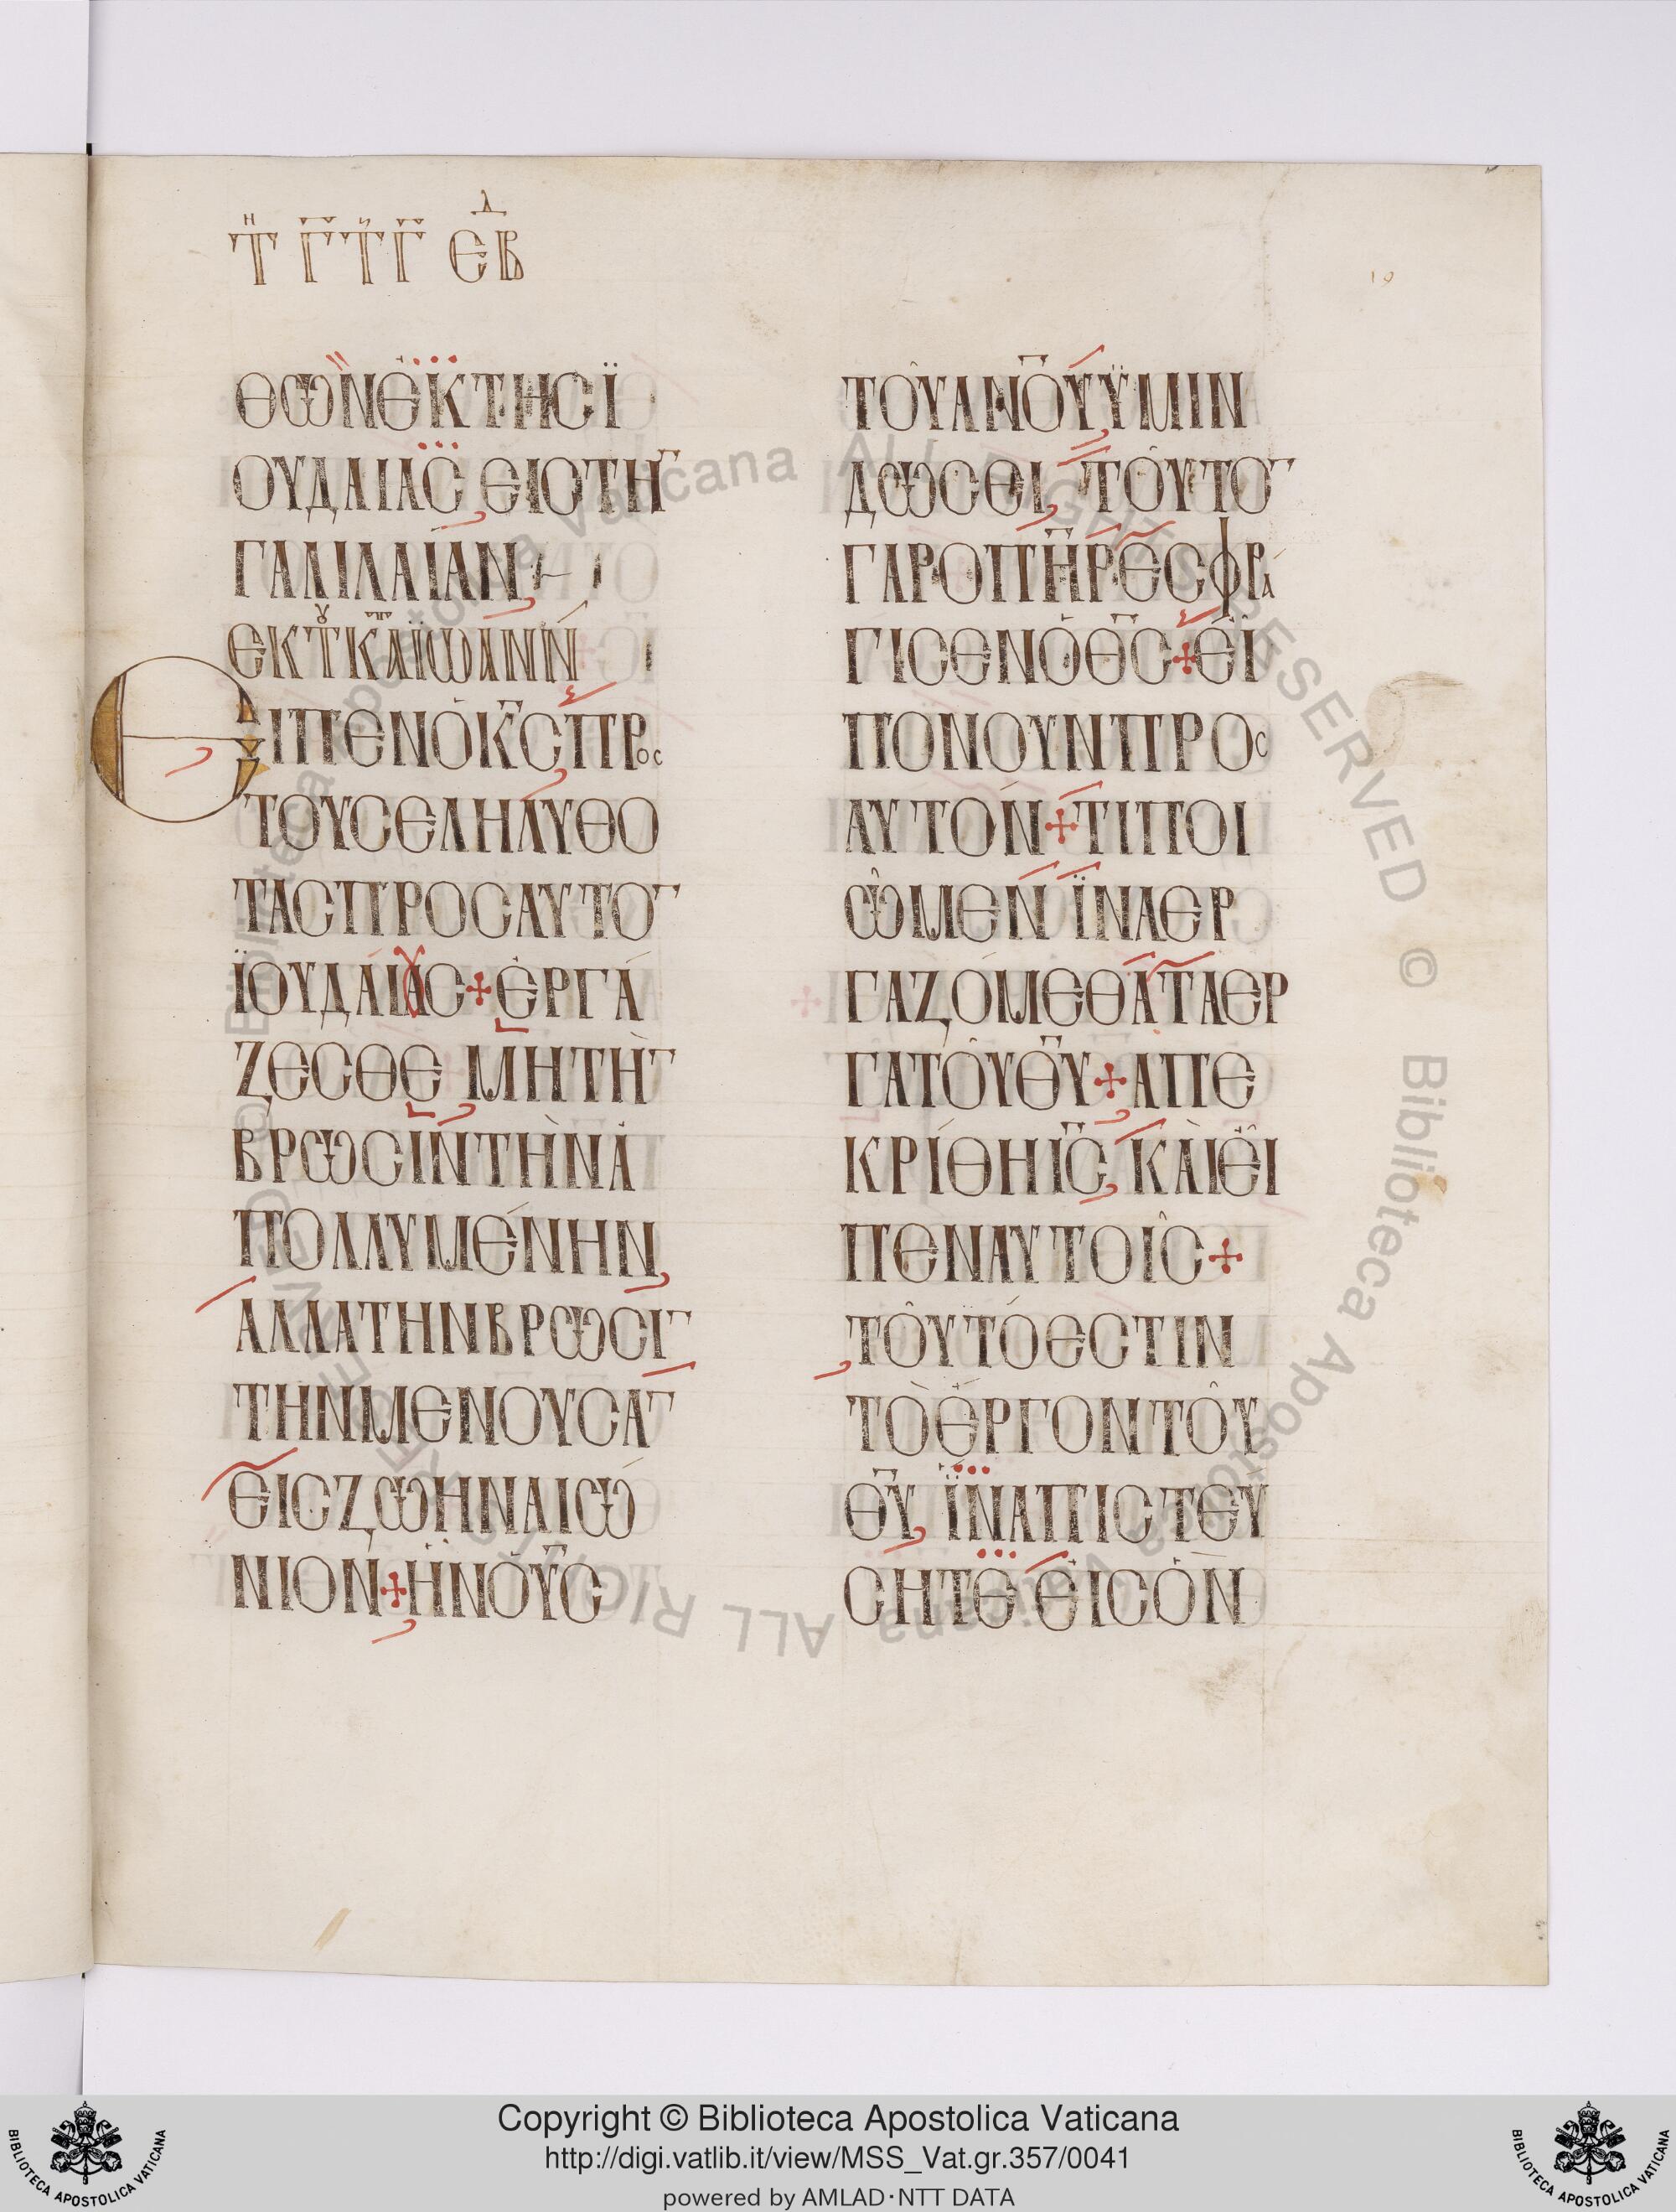 Τῌ Γ̅ Τῆ Γ̅ ЄΒΔ
19
ΘΩΝЄΚΤΗCΪ
ΟΥΔΑΙΑC ЄΙCΤΗ̅
ΓΑΛΙΛΑΙΑΝ
ЄΚΤΟΥΚΑΤΑΪΩΑΝΝ
ЄΙΠЄΝΟΚ̅C̅ΠΡΟC
ΤΟΥCЄΛΗΛΥΘΟ
ΤΑCΠΡΟCΑΥΤΟ̅
ΪΟΥΔΑΙΑC+ЄΡΓΑ
ΖЄCΘЄ ΜΗΤΗ̅
ΒΡΩCΙΝΤΗΝΑ
ΠΟΛΛΥΜЄΝΗΝ
ΑΛΛΑΤΗΝΒΡΩCΙ̅
ΤΗΝΜЄΝΟΥCΑ̅
ЄΙCΖΩΗΝΑΙΩ
ΝΙΟΝ+ΗΝΟΥ̅C̅
ΤΟΥΑΝ̅Ο̅Υ̅ΫΜΙΝ
ΔΩCΘΙ, ΤΟΥΤΟ̅
ΓΑΡΟΠ̅Η̅Ρ̅ЄCΦΡΑ
ΓΙCЄΝΟΘ̅C̅+ЄΪ
ΠΟΝΟΥΝΠΡΟC
ΑΥΤΟΝ+ΤΙΠΟΙ
ΩΜЄΝ ΪΝΑЄΡ
ΓΑΖΟΜЄΘΑΤΑЄΡ
ΓΑΤΟΥΘ̅Υ̅+ΑΠЄ
ΚΡΙΘΗΙ̅C̅, ΚΑΙЄΙ
ΠЄΝΑΥΤΟΙC+
ΤΟΥΤΟЄCΤΙΝ
ΤΟЄΡΓΟΝΤΟΥ
Θ̅Υ̅, ΪΝΑΠΙCΤЄΥ
CΗΤЄ ЄΙCΟΝ
Copyright © Biblioteca Apostolica Vaticana
http://digi.vatlib.it/view/MSS_Vat.gr.357/0041
powered by AMLAD・NTT DATA
BIBLIOTECA APOSTOLICA VATICANA
BIBLIOTECA APOSTOLICA VATICANA